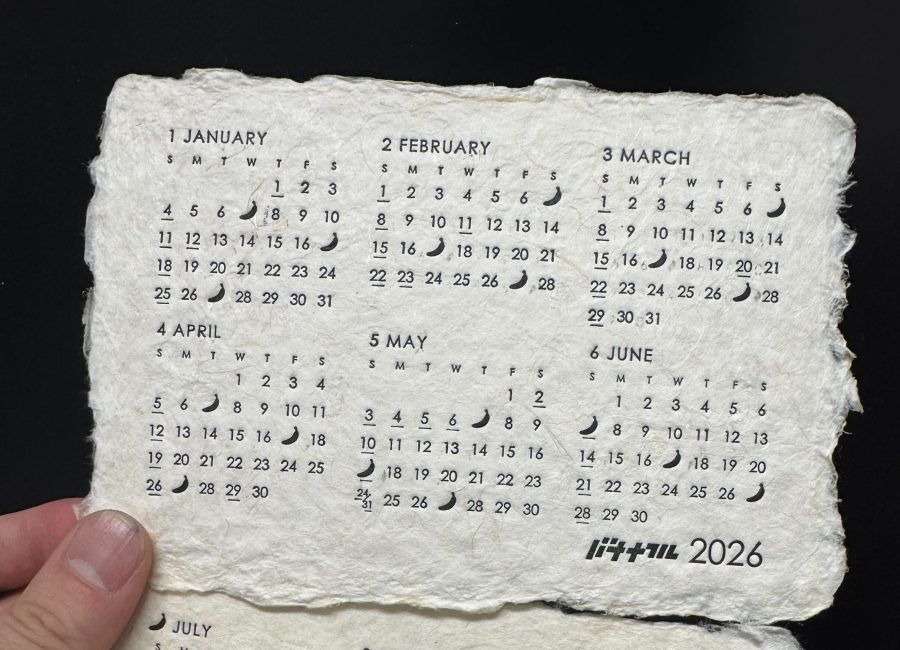 1 JANUARY
S M T W T F S
1 2 3
4 5 6 8 9 10
11 12 13 14 15 16
18 19 20 21 22 23 24
25 26 28 29 30 31
2 FEBRUARY
S M T W T F S
1 2 3 4 5 6
8 9 10 11 12 13 14
15 16 18 19 20 21
22 23 24 25 26 28
3 MARCH
S M T W T F S
1 2 3 4 5 6
8 9 10 11 12 13 14
15 16 18 19 20 21
22 23 24 25 26 28
29 30 31
4 APRIL
S M T W T F S
1 2 3 4
5 6 8 9 10 11
12 13 14 15 16 18
19 20 21 22 23 24 25
26 28 29 30
5 MAY
S M T W T F S
1 2
3 4 5 6 8 9
10 11 12 13 14 15 16
18 19 20 21 22 23
24/31 25 26 28 29 30
6 JUNE
S M T W T F S
1 2 3 4 5 6
8 9 10 11 12 13
14 15 16 18 19 20
21 22 23 24 25 26
28 29 30
バナナフル 2026
JULY